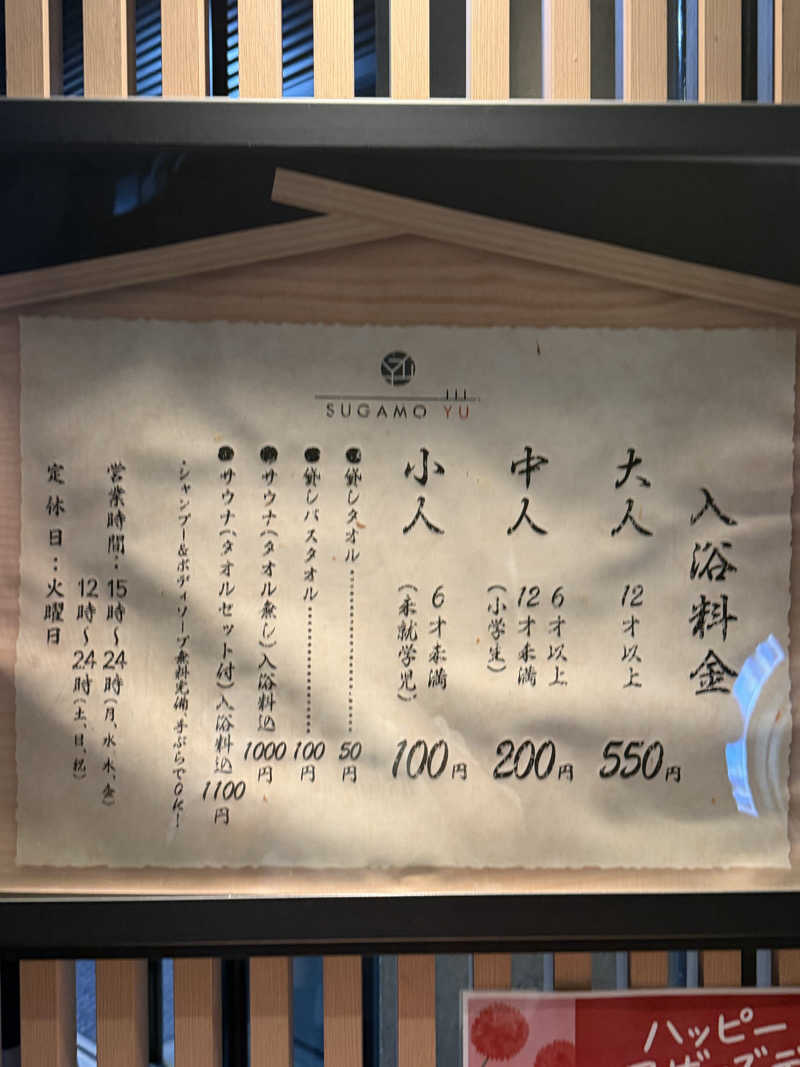 SUGAMO YU
入浴料金
大人
12才以上
550円
中人
6才以上
12才未満
(小学生)
200円
小人
6才未満
(未就学児)
100円
貸しタオル 50円
貸しバスタオル 100円
サウナ(タオル無し)入浴料込 1000円
サウナ(タオルセット付)入浴料込 1100円
・シャンプー&ボディソープ無料完備、手ぶらでOK!
営業時間:15時~24時(月、水、木、金)
12時~24時(土、日、祝)
定休日:火曜日
ハッピー